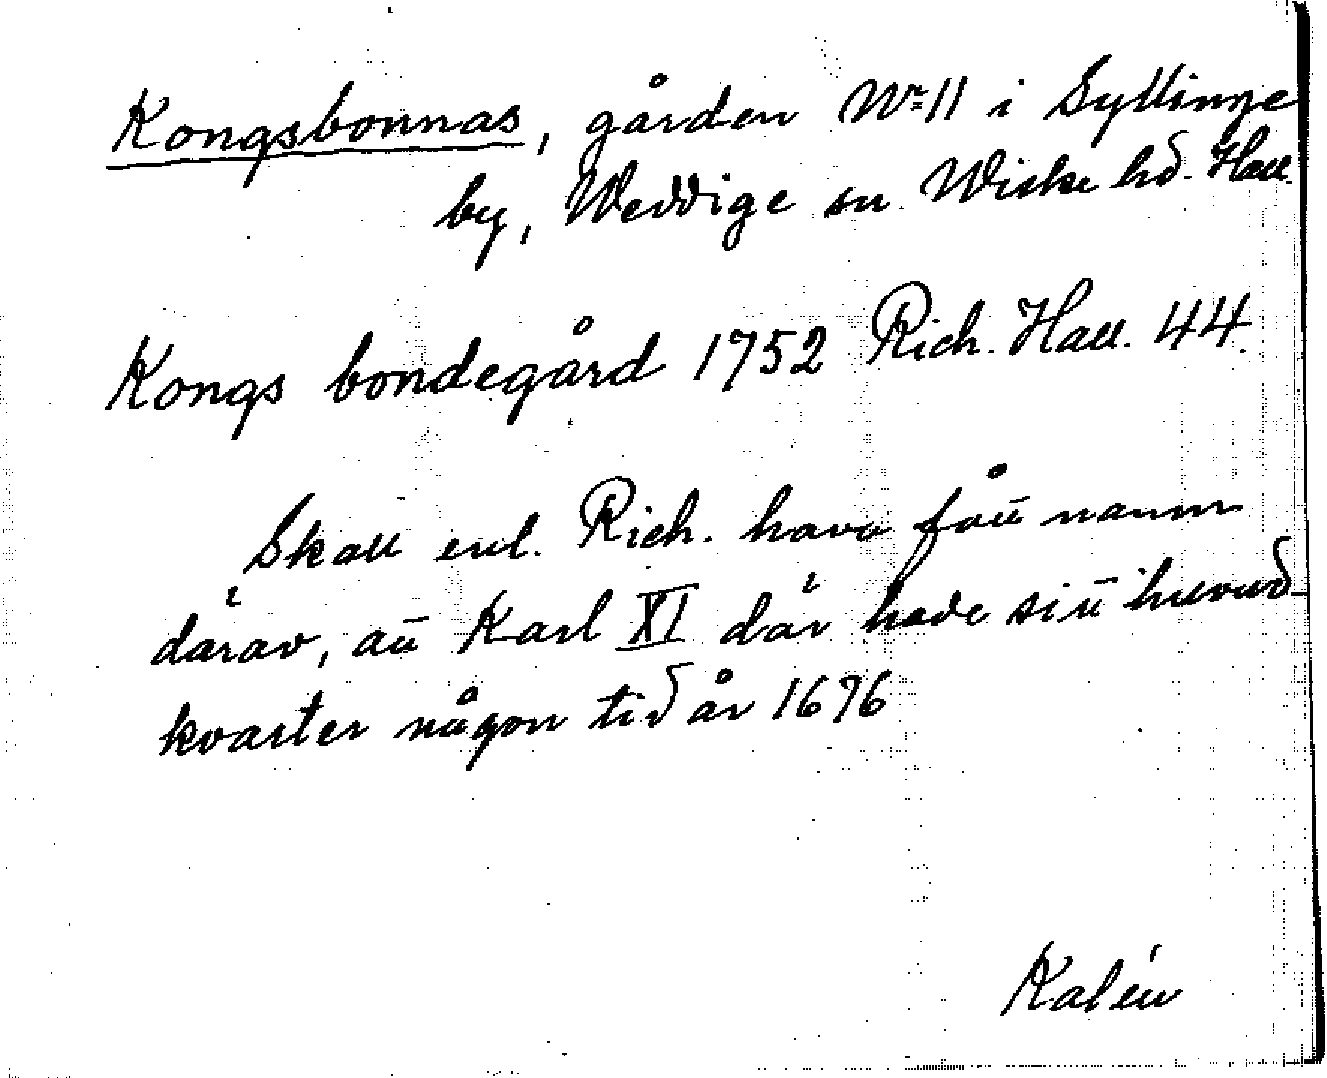 Kongsbonnas, gården No 11 i Syllinge
by, Weddige sn Wiske hd. Hall.
Kongs bondegård 1752 Rich. Hall. 44.
Skall enl. Rich. hava fått namn
därav, att Karl XI där hade sitt huvud-
kvarter någon tid år 1676
Kalén